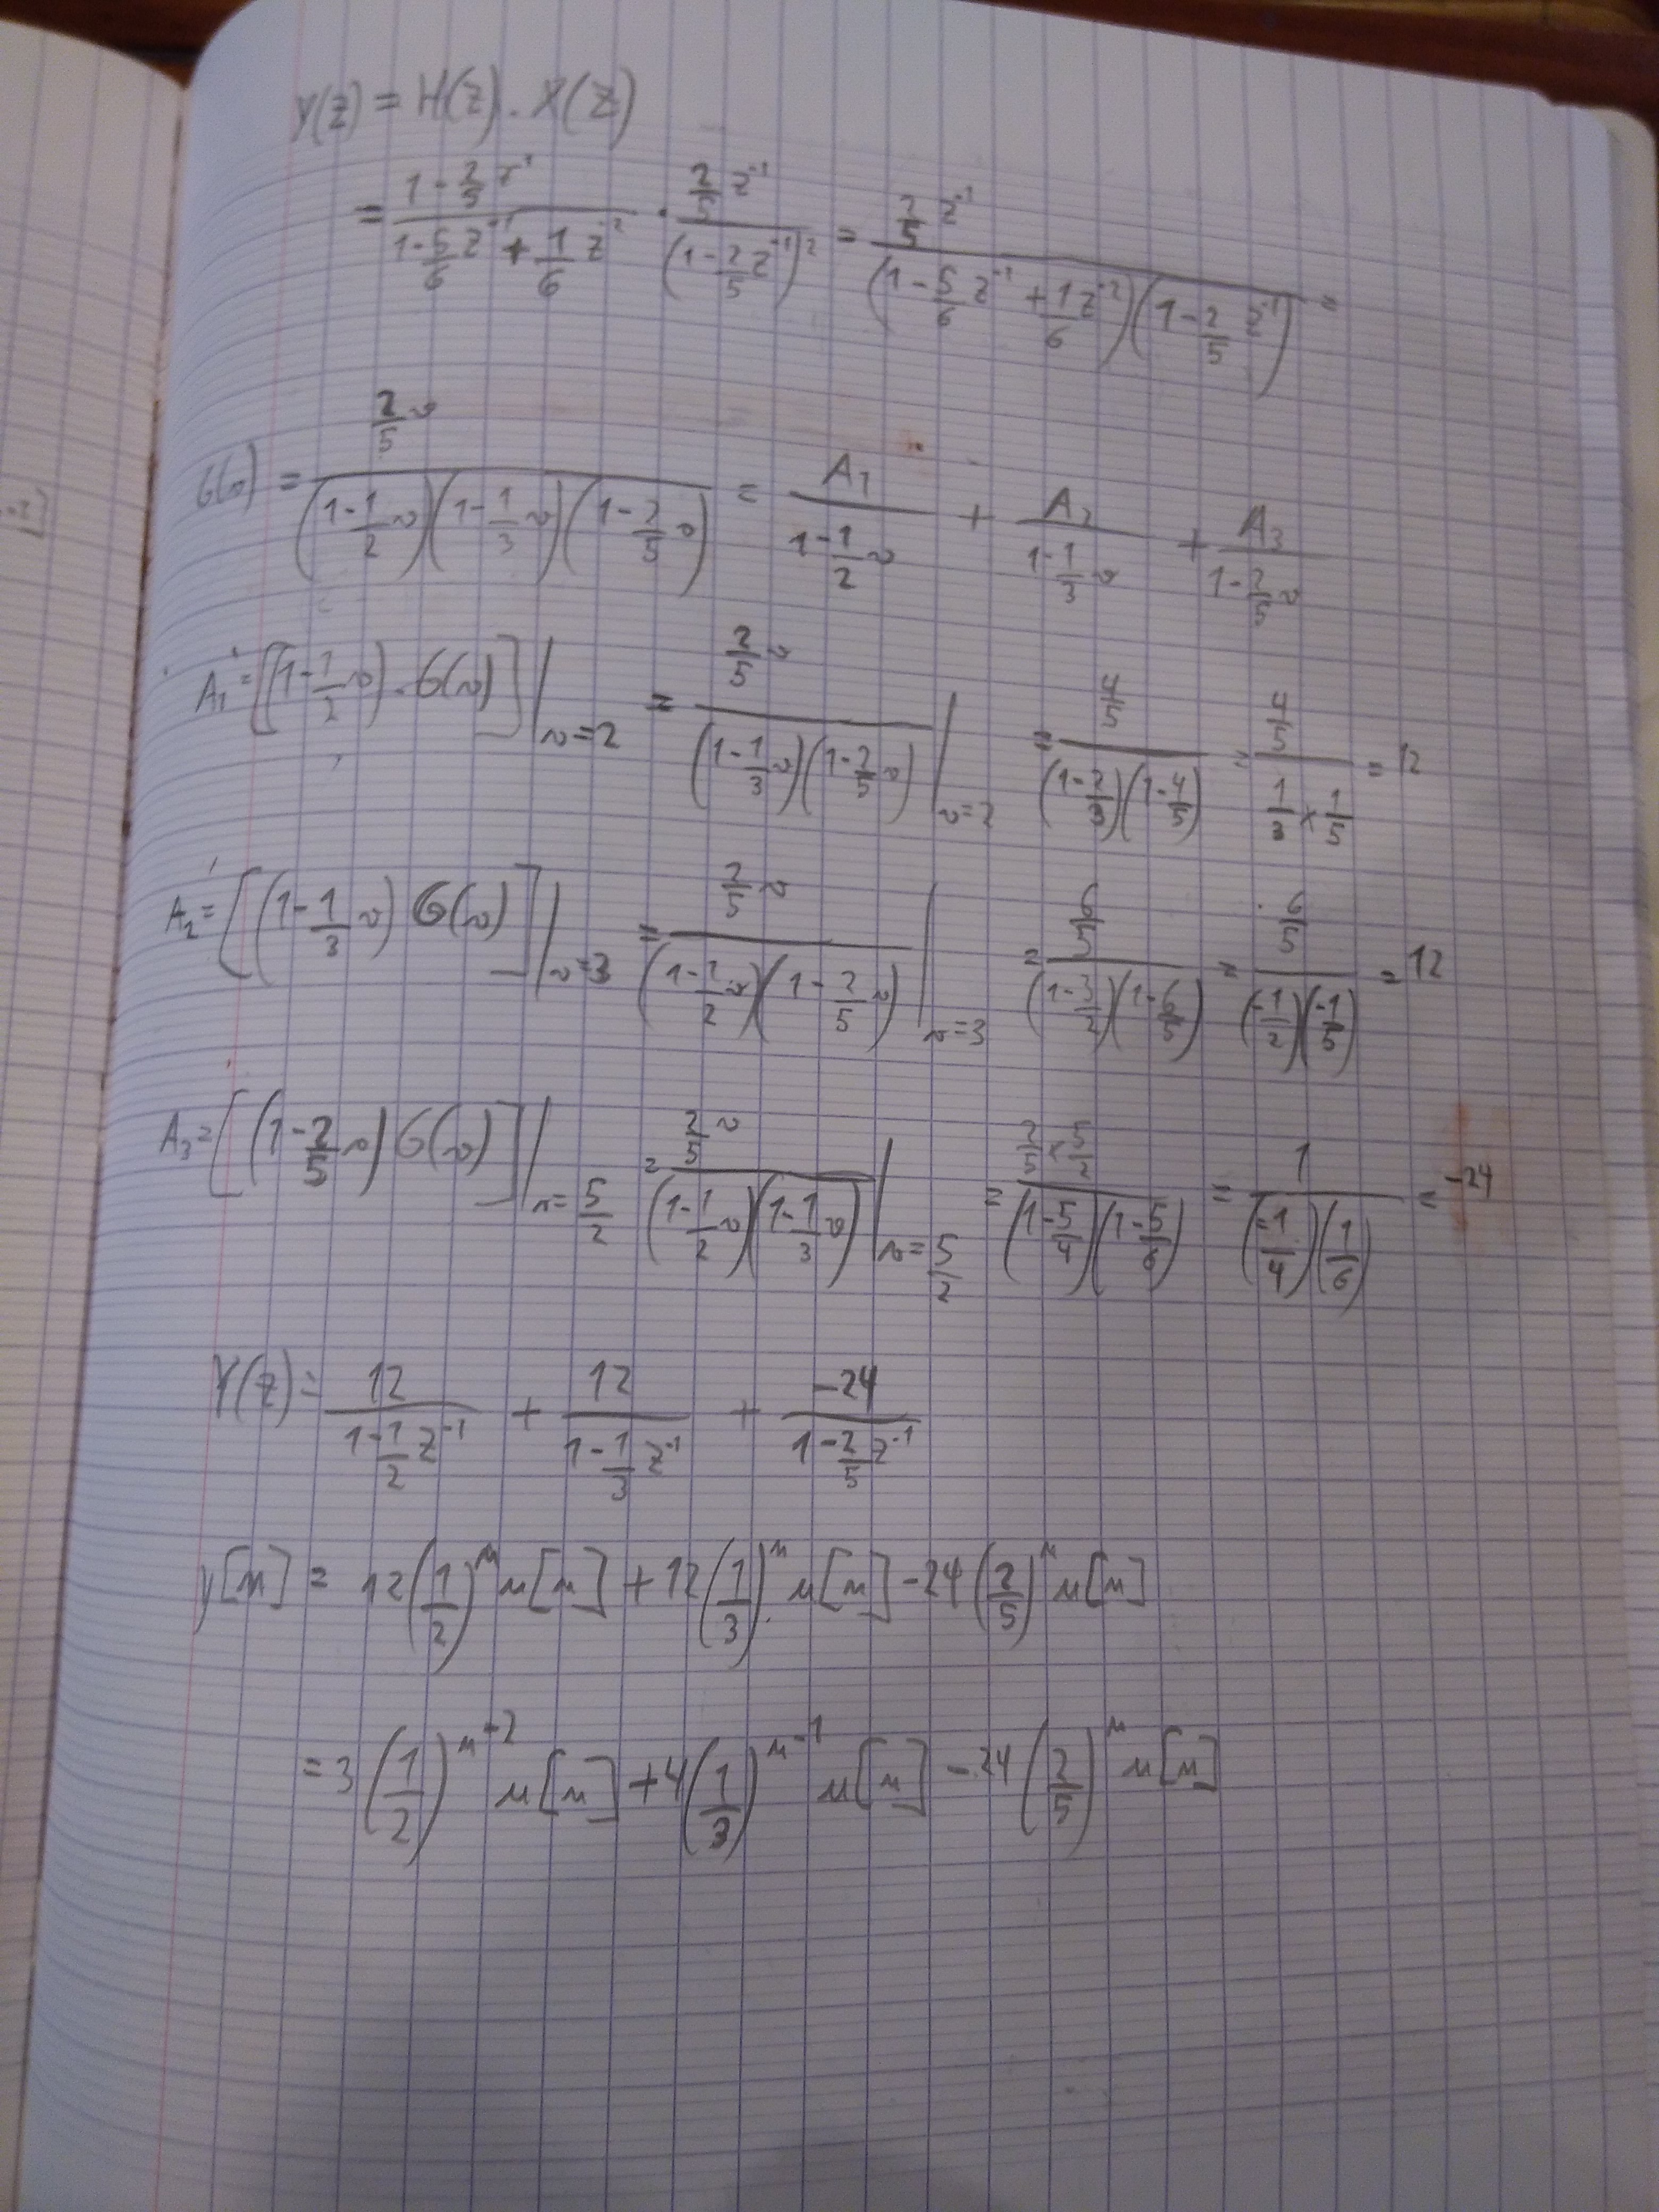 Y(z) = H(z) . X(z)
= (1 - 2/5 z^-1)/(1 - 5/6 z^-1 + 1/6 z^-2) . (2/5 z^-1)/(1 - 2/5 z^-1)^2 = (2/5 z^-1)/((1 - 5/6 z^-1 + 1/6 z^-2)(1 - 2/5 z^-1)) =
G(v) = (2/5 v)/((1 - 1/2 v)(1 - 1/3 v)(1 - 2/5 v)) = A1/(1 - 1/2 v) + A2/(1 - 1/3 v) + A3/(1 - 2/5 v)
A1 = [(1 - 1/2 v) . G(v)]|v=2 = (2/5 v)/((1 - 1/3 v)(1 - 2/5 v))|v=2 = (4/5)/((1 - 2/3)(1 - 4/5)) = (4/5)/(1/3 × 1/5) = 12
A2 = [(1 - 1/3 v) G(v)]|v=3 = (2/5 v)/((1 - 1/2 v)(1 - 2/5 v))|v=3 = (6/5)/((1 - 3/2)(1 - 6/5)) = (6/5)/((-1/2)(-1/5)) = 12
A3 = [(1 - 2/5 v) G(v)]|v=5/2 = (2/5 v)/((1 - 1/2 v)(1 - 1/3 v))|v=5/2 = (2/5 × 5/2)/((1 - 5/4)(1 - 5/6)) = 1/((-1/4)(1/6)) = -24
Y(z) = 12/(1 - 1/2 z^-1) + 12/(1 - 1/3 z^-1) + -24/(1 - 2/5 z^-1)
y[n] = 12(1/2)^n u[n] + 12(1/3)^n u[n] - 24(2/5)^n u[n]
= 3(1/2)^n-2 u[n] + 4(1/3)^n-1 u[n] - 24(2/5)^n u[n]